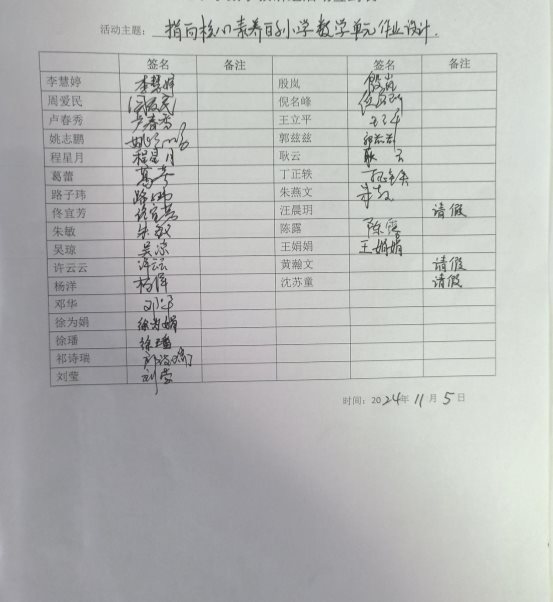 活动主题：指向核心素养的小学数学单元作业设计.
签名 备注 签名 备注
李慧婷 李慧婷 殷岚 殷岚
周爱民 周爱民 倪名峰
卢春秀 卢春秀 王立平
姚志鹏 郭兹兹
程星月 程星月 耿云 耿云
葛蕾 葛蕾 丁正轶
路子玮 路子玮 朱燕文
佟宜芳 佟宜芳 汪晨玥 请假
朱敏 朱敏 陈露 陈露
吴琼 吴琼 王娟娟 王娟娟
许云云 许云云 黄瀚文 请假
杨洋 杨洋 沈苏童 请假
邓华 邓华
徐为娟 徐为娟
徐璠 徐璠
祁诗瑞
刘莹 刘莹
时间：2024年11月5日